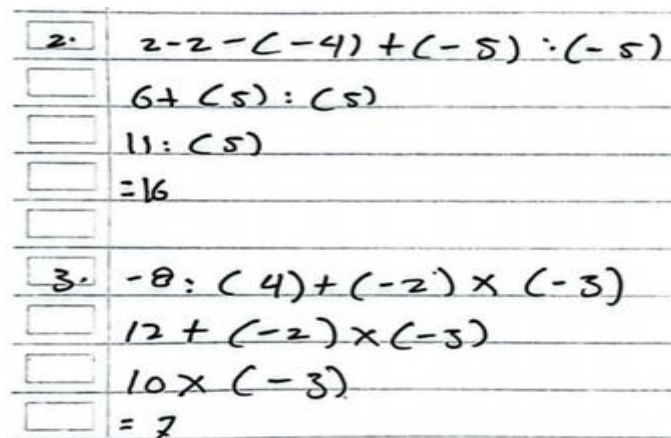 2. 2-2-(-4)+(-5):(-5)
6+(5):(5)
11:(5)
=16
3. -8:(4)+(-2)×(-3)
12+(-2)×(-3)
10×(-3)
=7